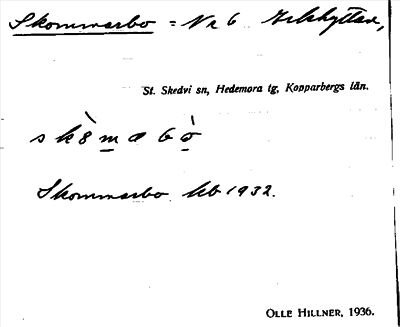 Skommarbo = Nr 6 Arkhyttan,
St. Skedvi sn, Hedemora tg, Kopparbergs län.
Skommarbo kb 1932.
OLLE HILLNER, 1936.